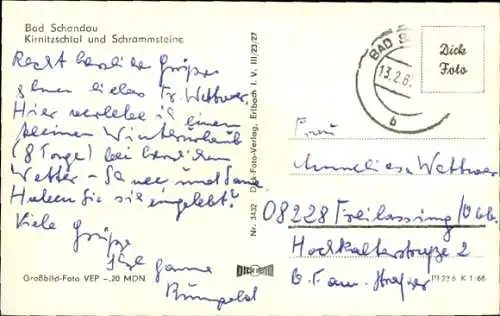 Bad Schandau
Kirnitzschtal und Schrammsteine
Recht herzliche Grüße
Ihnen liebes Frl. Wettwer.
Hier verlebe ich einen
kleinen Winterurlaub
(8 Tage) bei herrlichem
Wetter - Schnee und Sonne
Haben Sie sich eingelebt?
Viele Grüße
Ihre
Großbild-Foto VEP -.20 MDN
Nr. 3432 Dick-Foto-Verlag, Erlbach i. V. III/23/27
DICK
BAD
13.2.6
b
Dick
Foto
Frau
Anneliese Wettwer
08228 Freilassing/Obb.
Hochkalterstraße 2
b. Fam.
K 1/66